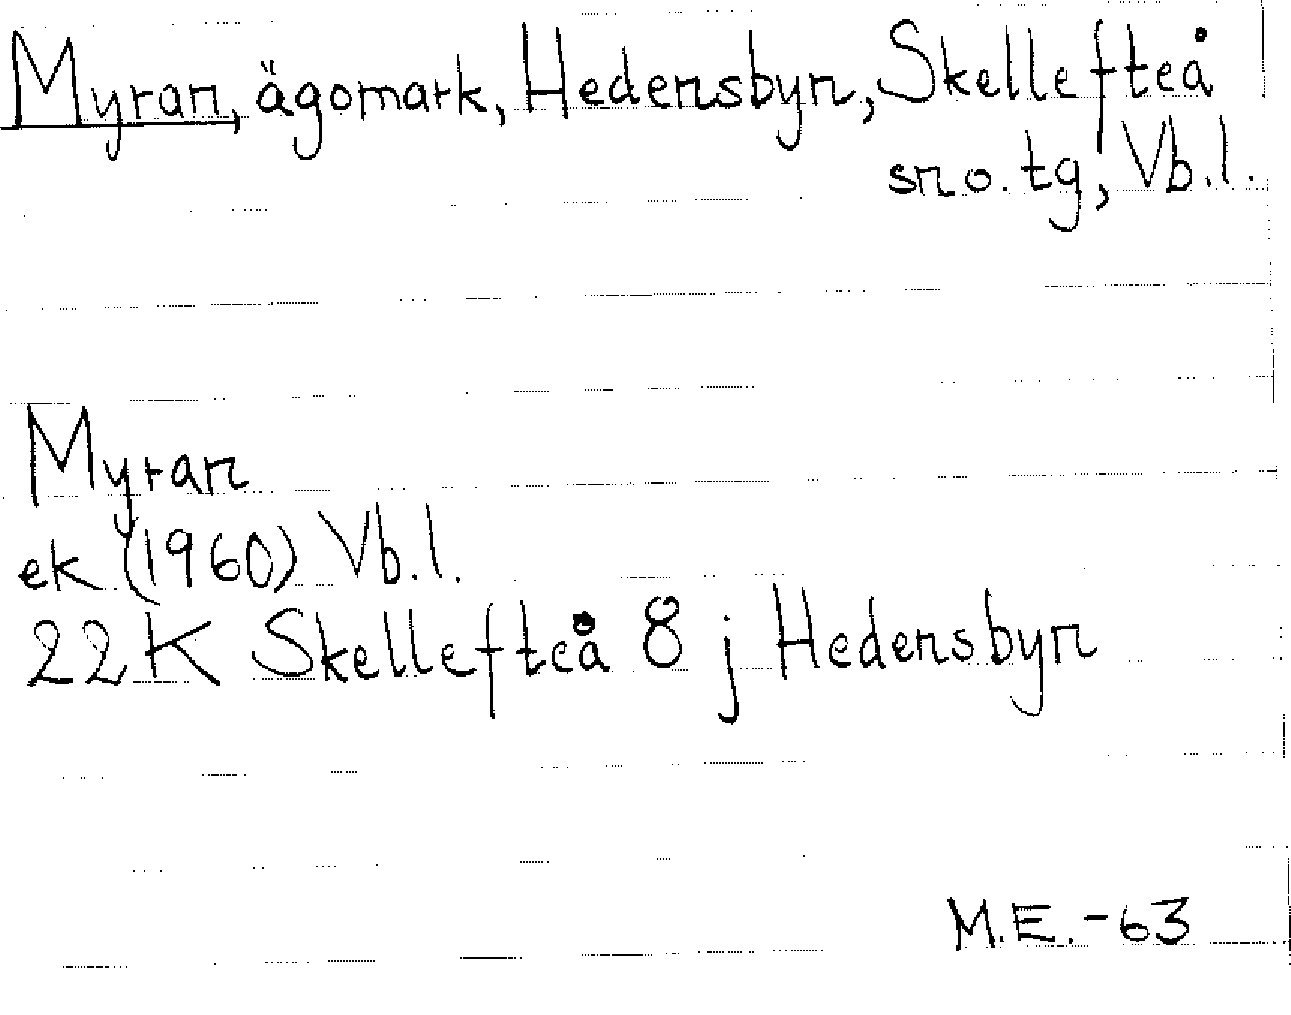 Myran, ägomark, Hedensbyn, Skellefteå
sn o. tg, Vb.l.
Myran
ek (1960) Vb.l.
22K Skellefteå 8 j Hedensbyn
M.E.-63